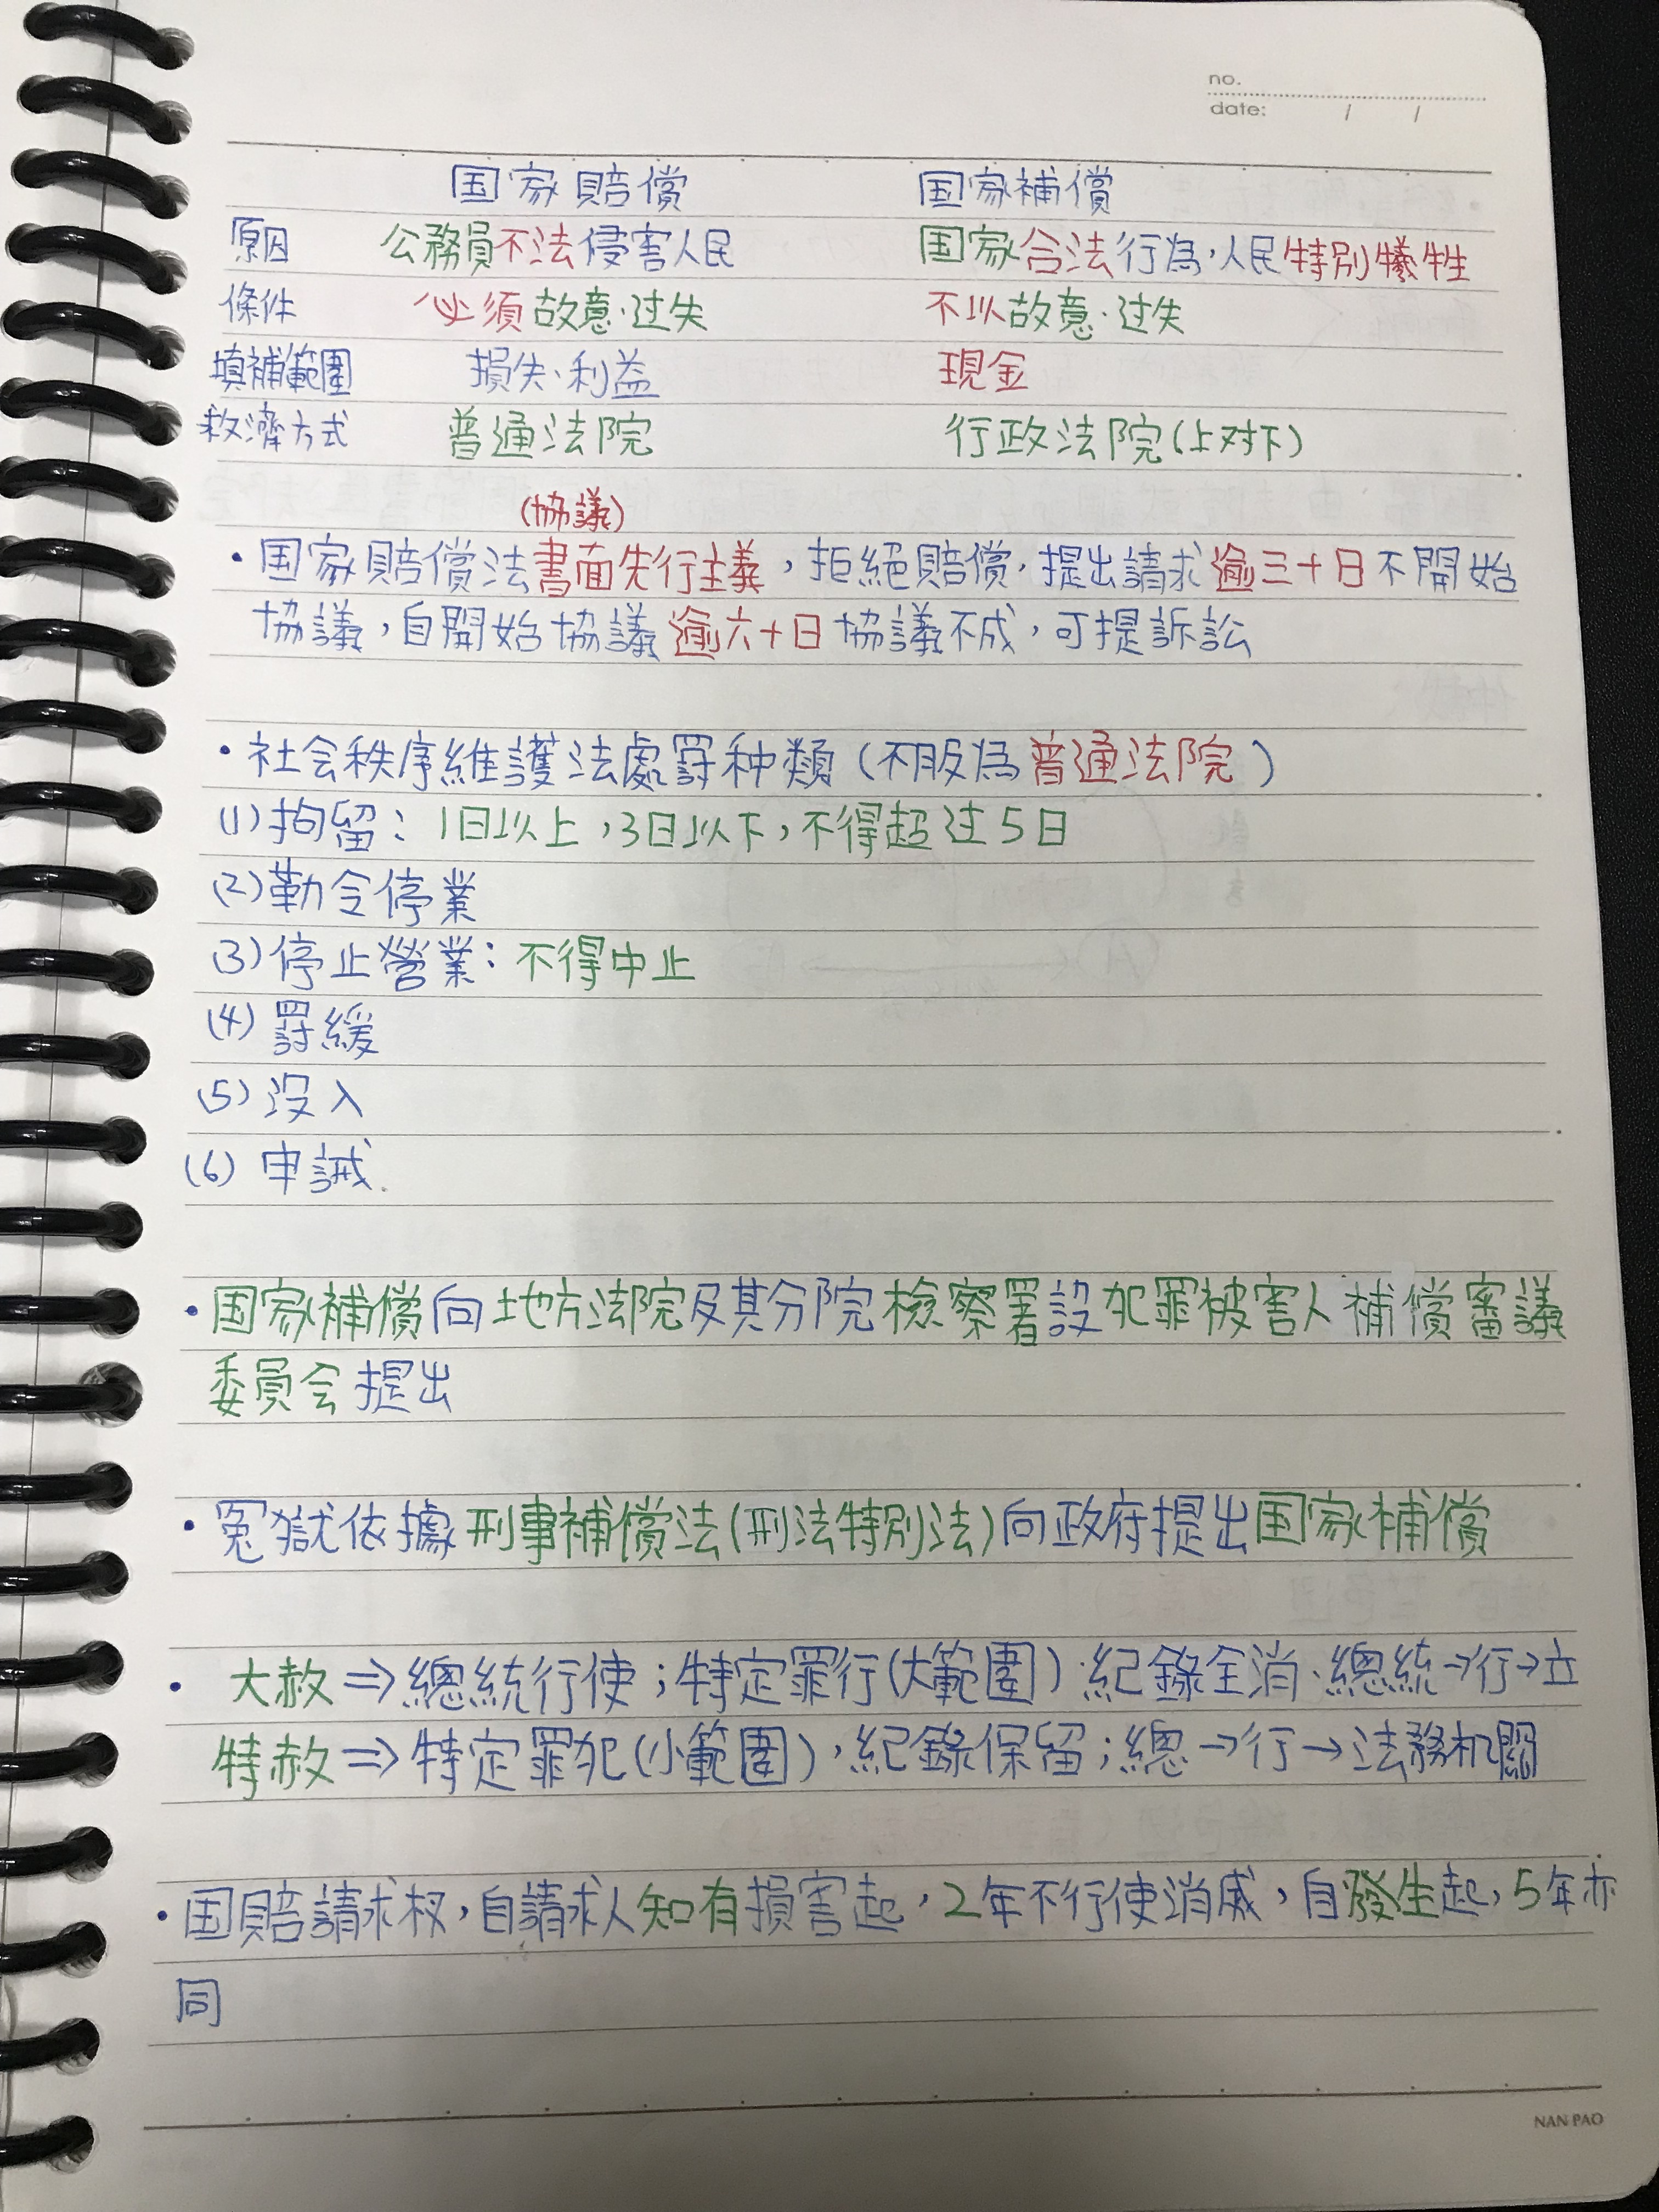 no.
date: / /
国家賠償 国家補償
原因 公務員不法侵害人民 国家合法行為,人民特別犧牲
條件 必須故意·过失 不以故意·过失
填補範圍 損失·利益 現金
救濟方式 普通法院 行政法院(上对下)
(協議)
·国家賠償法書面先行主義,拒絕賠償,提出請求逾三十日不開始
協議,自開始協議逾六十日協議不成,可提訴訟
·社会秩序維護法處罰种類(不服為普通法院)
(1)拘留:1日以上,3日以下,不得超过5日
(2)勒令停業
(3)停止營業:不得中止
(4)罰緩
(5)沒入
(6)申誡.
·国家補償向地方法院及其分院檢察署設犯罪被害人補償審議
委員会提出
·冤獄依據刑事補償法(刑法特別法)向政府提出国家補償
·大赦⇒總統行使;特定罪行(大範圍)·紀錄全消·總統→行→立
特赦⇒特定罪犯(小範圍),紀錄保留;總→行→法務机關
·国賠請求权,自請求人知有損害起,2年不行使消滅,自發生起,5年亦
同
NAN PAO